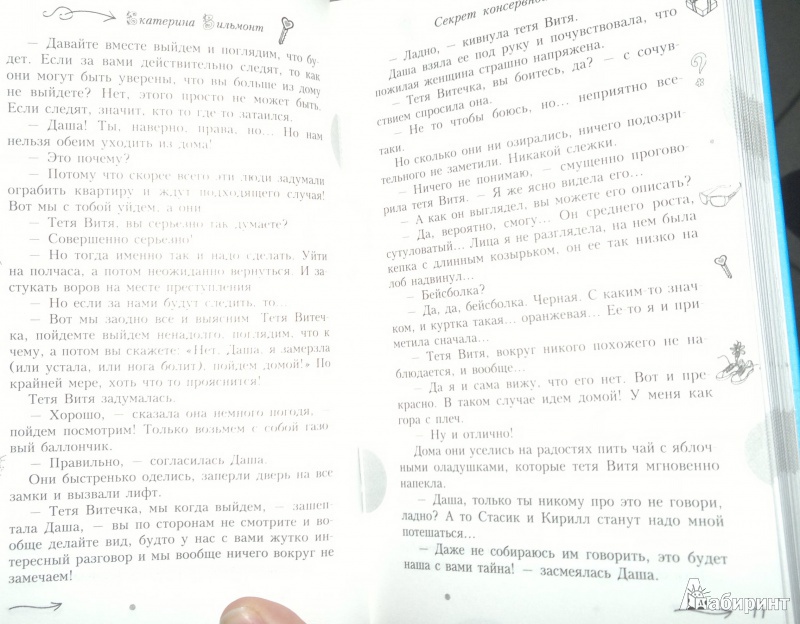 Екатерина Вильмонт
— Давайте вместе выйдем и поглядим, что бу-
дет. Если за вами действительно следят, то как
они могут быть уверены, что вы больше из дому
не выйдете? Нет, этого просто не может быть.
Если следят, значит, кто то где то затаился.
— Даша! Ты, наверно, права, но... Но нам
нельзя обеим уходить из дома!
— Это почему?
— Потому что скорее всего эти люди задумали
ограбить квартиру и ждут подходящего случая!
Вот мы с тобой уйдем, а они
— Тетя Витя, вы серьезно так думаете?
— Совершенно серьезно!
— Но тогда именно так и надо сделать. Уйти
на полчаса, а потом неожиданно вернуться. И за
стукать воров на месте преступления
— Но если за нами будут следить, то...
— Вот мы заодно все и выясним Тетя Витеч-
ка, пойдемте выйдем ненадолго, поглядим, что к
чему, а потом вы скажете: «Нет, Даша, я замерзла
(или устала, или нога болит), пойдем домой!» По
крайней мере, хоть что то прояснится!
Тетя Витя задумалась.
— Хорошо, — сказала она немного погодя, —
пойдем посмотрим! Только возьмем с собой газо
вый баллончик.
— Правильно, — согласилась Даша.
Они быстренько оделись, заперли дверь на все
замки и вызвали лифт.
— Тетя Витечка, мы когда выйдем, — зашеп-
тала Даша, — вы по сторонам не смотрите и во-
обще делайте вид, будто у нас с вами жутко ин-
тересный разговор и мы вообще ничего вокруг не
замечаем!
Секрет консервно
— Ладно, — кивнула тетя Витя.
Даша взяла ее под руку и почувствовала, что
пожилая женщина страшно напряжена.
— Тетя Витечка, вы боитесь, да? — с сочув-
ствием спросила она.
— Не то чтобы боюсь, но... неприятно все-
таки.
Но сколько они ни озирались, ничего подозри-
тельного не заметили. Никакой слежки.
— Ничего не понимаю, — смущенно прогово-
рила тетя Витя. — Я же ясно видела его...
— А как он выглядел, вы можете его описать?
— Да, вероятно, смогу... Он среднего роста,
сутуловатый... Лица я не разглядела, на нем была
кепка с длинным козырьком, он ее так низко на
лоб надвинул...
— Бейсболка?
— Да, да, бейсболка. Черная. С каким-то знач
ком, и куртка такая... оранжевая... Ее-то я и при-
метила сначала...
— Тетя Витя, вокруг никого похожего не на-
блюдается, и вообще...
— Да я и сама вижу, что его нет. Вот и пре-
красно. В таком случае идем домой! У меня как
гора с плеч.
— Ну и отлично!
Дома они уселись на радостях пить чай с яблоч-
ными оладушками, которые тетя Витя мгновенно
напекла.
— Даша, только ты никому про это не говори,
ладно? А то Стасик и Кирилл станут надо мной
потешаться...
— Даже не собираюсь им говорить, это будет
наша с вами тайна! — засмеялась Даша.
11
Лабиринт